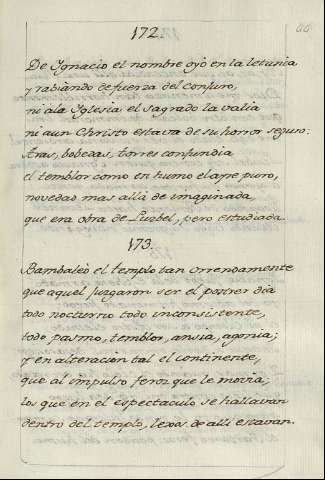 172.
De Ygnacio el nombre oyó en la letania
y rabiando de fuerza del conjuro,
ni a la Yglesia el sagrado la valia
ni aun Christo estava de su horror seguro:
Aras, bobedas, torres confundia
el temblor como en humo el ayre puro,
novedad mas allá de imaginada
que era obra de Luzbel, pero estudiada.
173.
Bambaleò el templo tan orrendamente
que aquel, juzgaron ser el postrer dia
todo nocturno todo inconsistente,
todo pasmo, temblor, ansia, agonia;
y en alteracion tal el continente,
que al impulso feroz que le movia;
los que en el espectaculo se hallavan
dentro del templo, lexos de alli estavan.